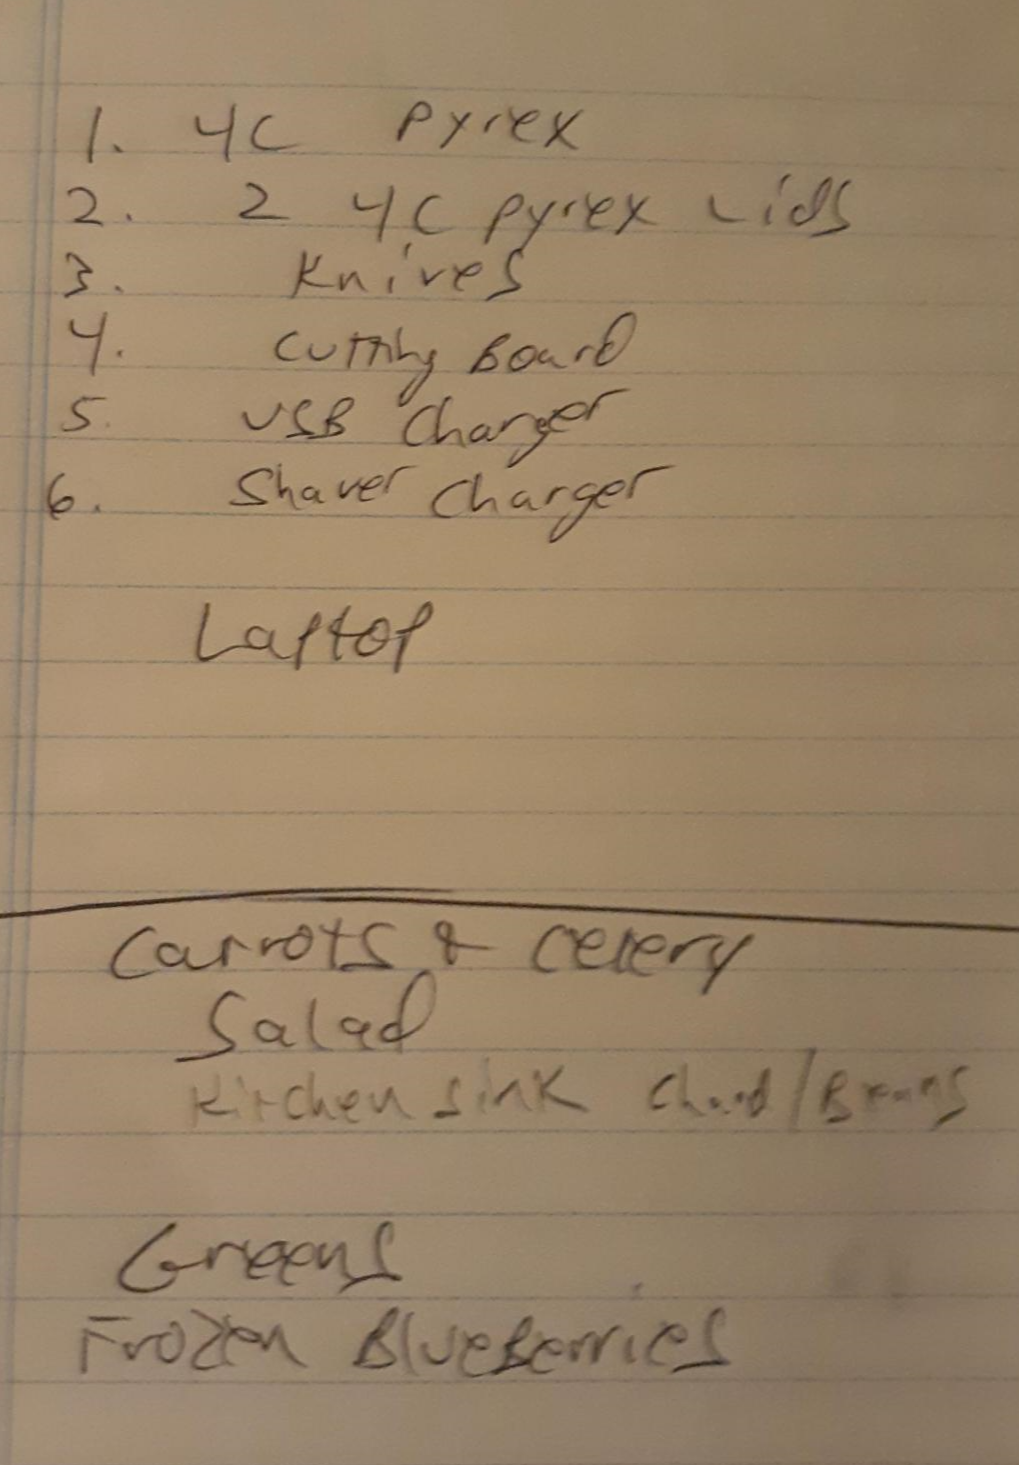 1. 4C Pyrex
2. 2 4C Pyrex Lids
3. Knives
4. Cutting Board
5. USB Charger
6. Shaver Charger
Laptop
Carrots & Celery
Salad
Kitchen Sink Chard/Beans
Greens
Frozen BlueBerries